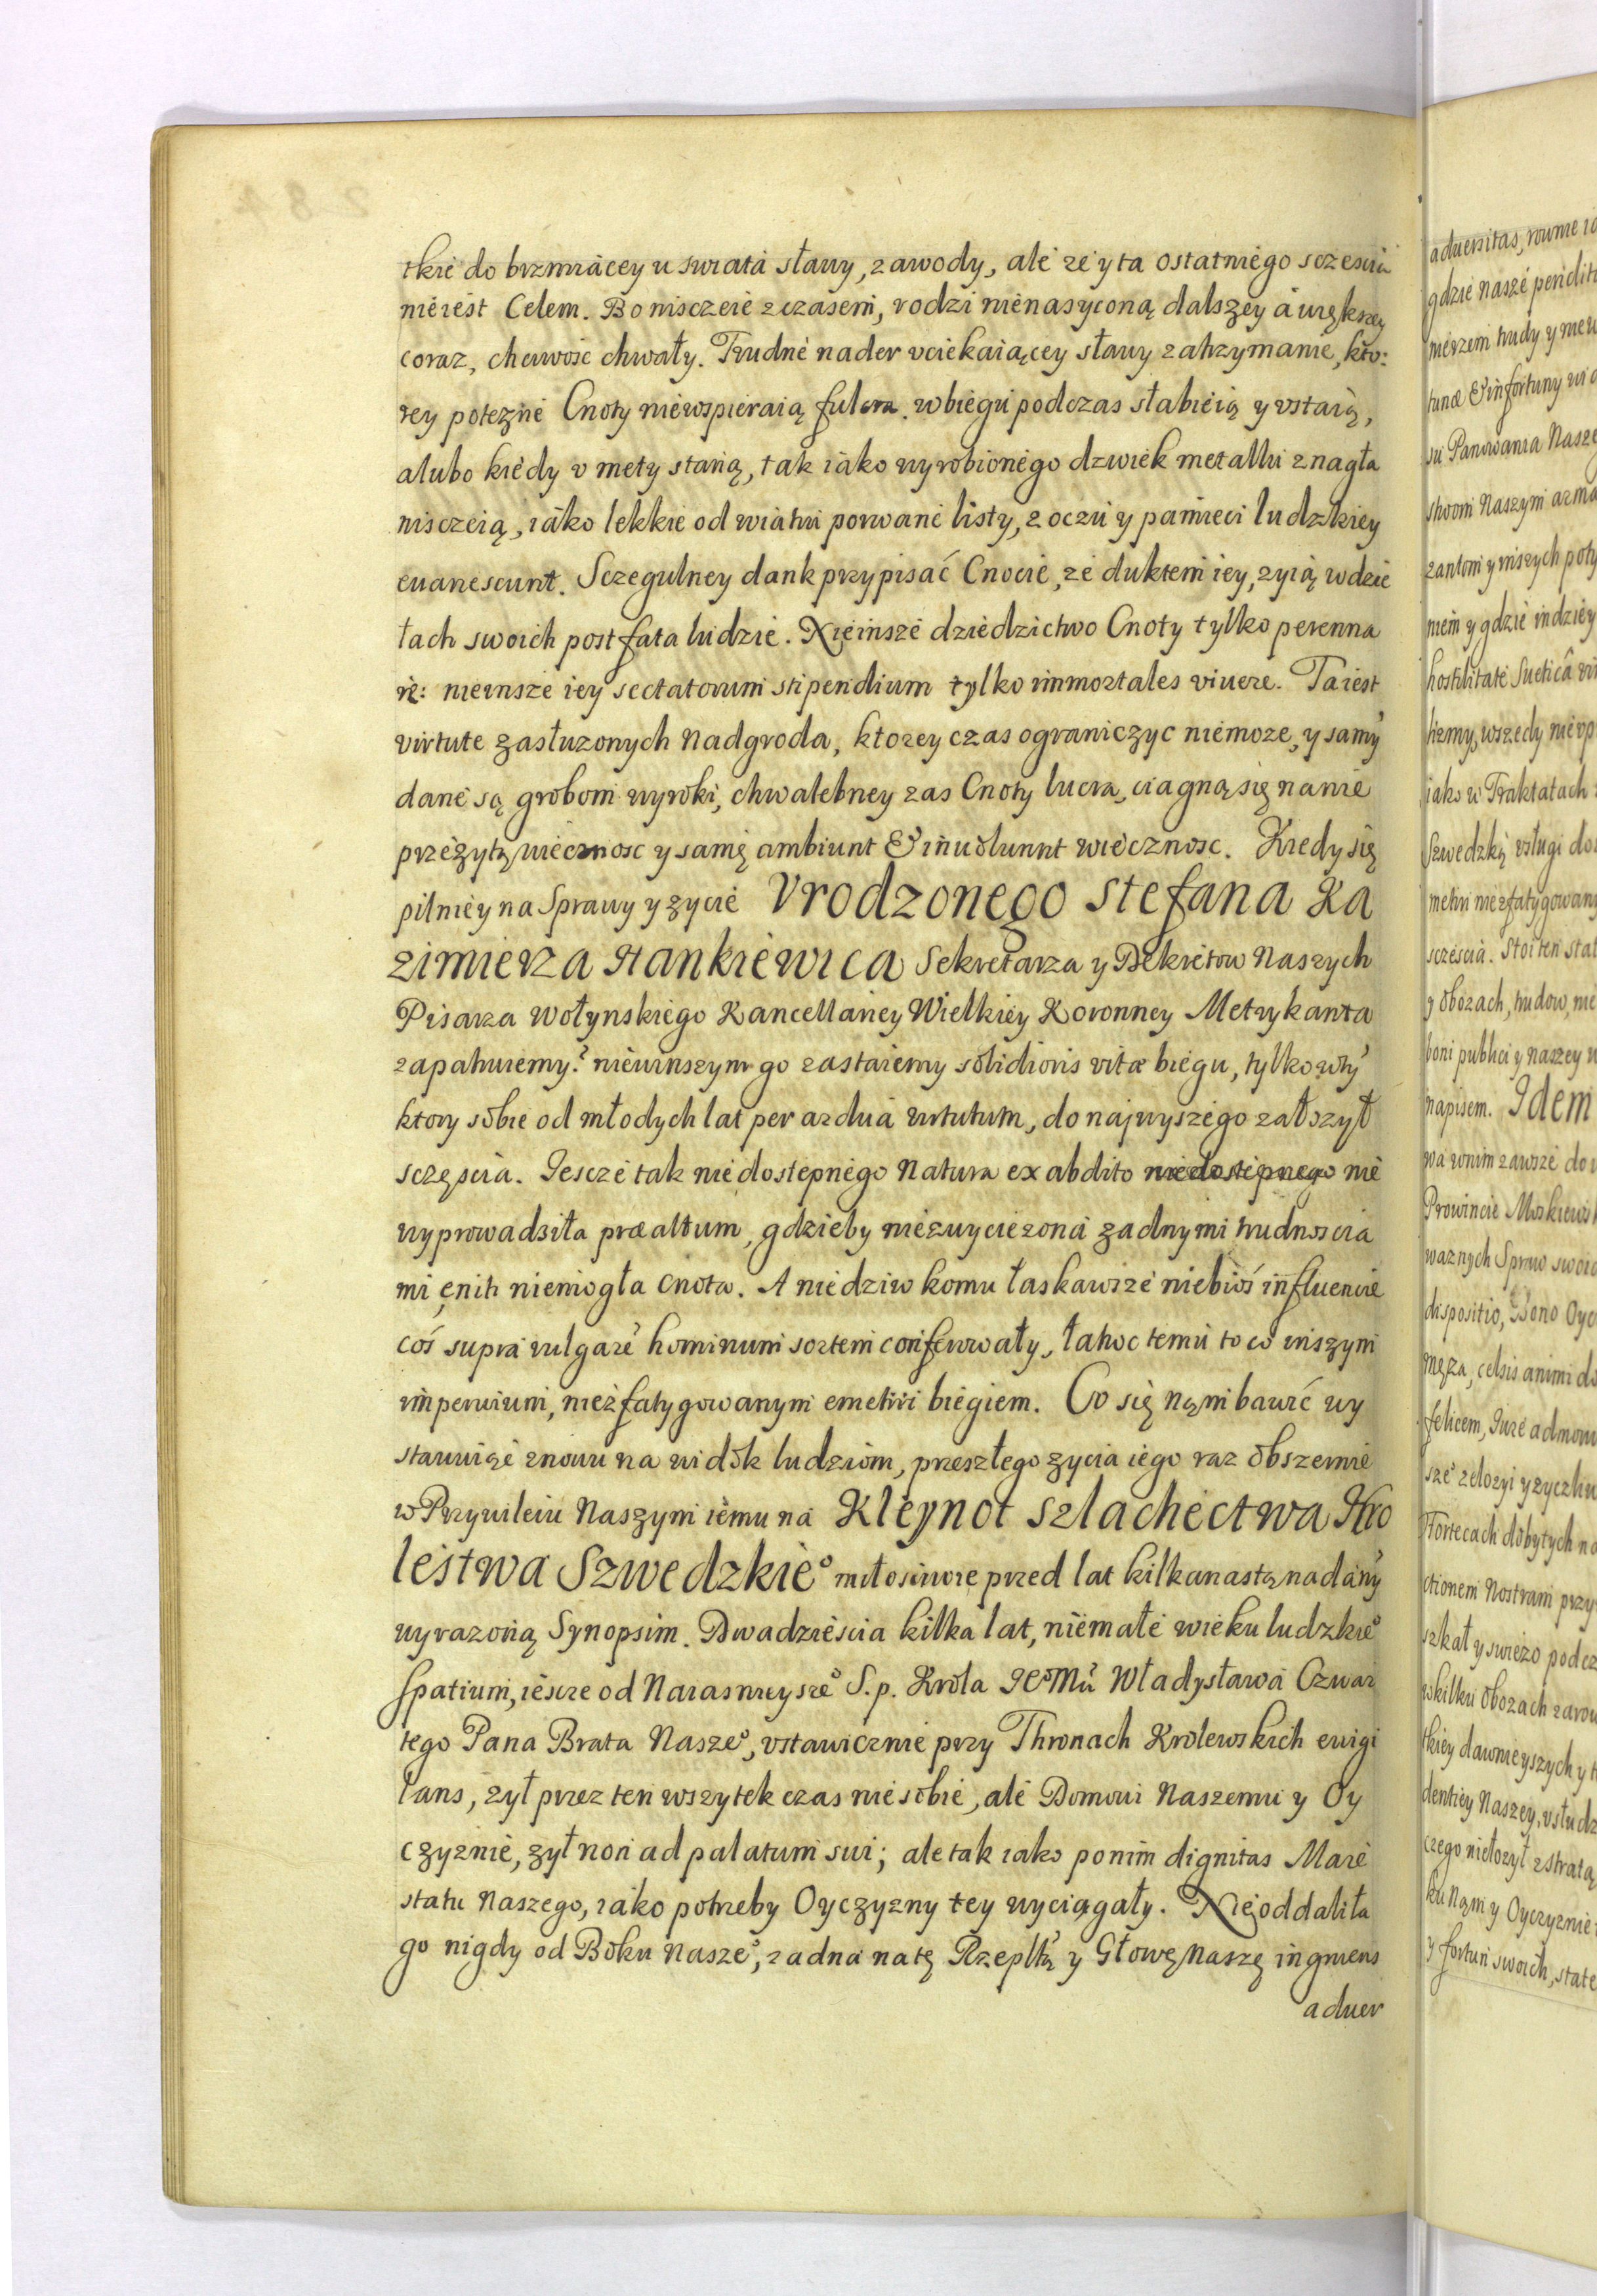 tkie do brzmiacey u swiata sławy, zawody, ale że y ta ostatniego sczescia
nieiest Celem. Bo nisczeie z czasem, rodzi nienasyconą dalszey á większey
coraz, chciwość chwały. Trudne nader vciekaiącey sławy zatrzymanie, kto:
rey potezne Cnoty niewspieraią fulcra. w biegu podczas słabieią y vstaią,
alubo kiedy v mety staną, tak iako wyrobionego dzwiek metallu znagła
nisczeią, iako lekkie od wiatru porwane listy, z oczu y pamieci ludzkiey
euanescunt. Sczegulney dank przypisać Cnocie, że duktem iey, zyią w dzie
łach swoich post fata ludzie. Nieinsze dziedzictwo Cnoty tylko perenna
re: nieinsze iey sectatorum stipendium tylko immortales viuere. Ta iest
virtute zasłuzonych Nadgroda, ktorey czas ograniczyc niemoze, y samy
dane są grobom wyroki, chwalebney zas Cnoty lucra, ciagną się nanie
przezytą wiecznosc y samę ambiunt & inuolunnt wiecznosc. Kiedy się
pilniey na Sprawy y zycie Vrodzonego Stefana Ka
zimierza Hankiewica Sekretarza y Dekretow Naszych
Pisarza Wołynskiego Kancellariey Wielkiey Koronney Metrykanta
zapatruiemy? nieinszym go zastaiemy solidioris vitæ biegu, tylko w tỷ
ktory sobie od młodych lat per ardua virtutum, do najwyszego załozył
sczęscia. Iescze tak niedostepnego Natura ex abdito niedostepnego nie
wyprowadziła præaltum, gdzieby niezwyciezona zadnymi trudnoscia
mi eniti niemogła Cnota. A niedziw komu łaskawsze niebios influencie
coś supra vulgare hominum sortem conferowały, łatwo temu to co inszym
imperuium, niezfatygowanym emetiri biegiem. Co się nąm bawić wy
stawuiąc znowu na widok ludziom, przeszłego zycia iego raz obszernie
w Przywileiu Naszym iemu na Kleynot Szlachectwa Kro
lestwa Szwedzkie° miłosciwie przed lat kilkanastą nadanỷ
wyrazoną Synopsim. Dwadziescia kilka lat, niemałe wieku ludzkie°
spatium, iescze od Naiasnieysze° S. p. Krola IEoMu Władysława Czwar
tego Pana Brata Nasze°, vstawicznie przy Thronach Krolewskich euigi
lans, zył przez ten wszytek czas nie sobie, ale Domowi Naszemu y Oy
czyznie, zył non ad palatum sui; ale tak iako po nim dignitas Maie
statu Naszego, iako potrzeby Oyczyzny tey wyciągały. Nieoddaliła
go nigdy od Boku Nasze°, zadna na tę Rzepltą y Głowę Naszę ingruens
aduer
aduersitas, rownie
gdzie nasze
mierzem trudy y
tunæ & infortuny
su Panowania Nasze
stwom Naszym
zantom y inszych
niem y gdzie indziey
hostilitate Suetica
wszedy
iako w Traktatach
Szwedzką vsługi
niezfatygowany
sczescia. Stoi ten
y obozach, trudow,
boni publici y naszey
napisem. Idem
wa w nim zawsze do
Prowincie
waznych Spraw
dispositio, Bono
męza, celsis animi
felicem,
y zyczliw
Fortecach dobytych
ctionem Nostram
szkał y swiezo
w kilku obozach
tkiey dawnieyszych y
dentiey Naszey,
czego niełozył z stratą
ku Nąm y Oyczyznie
y fortun swoich,